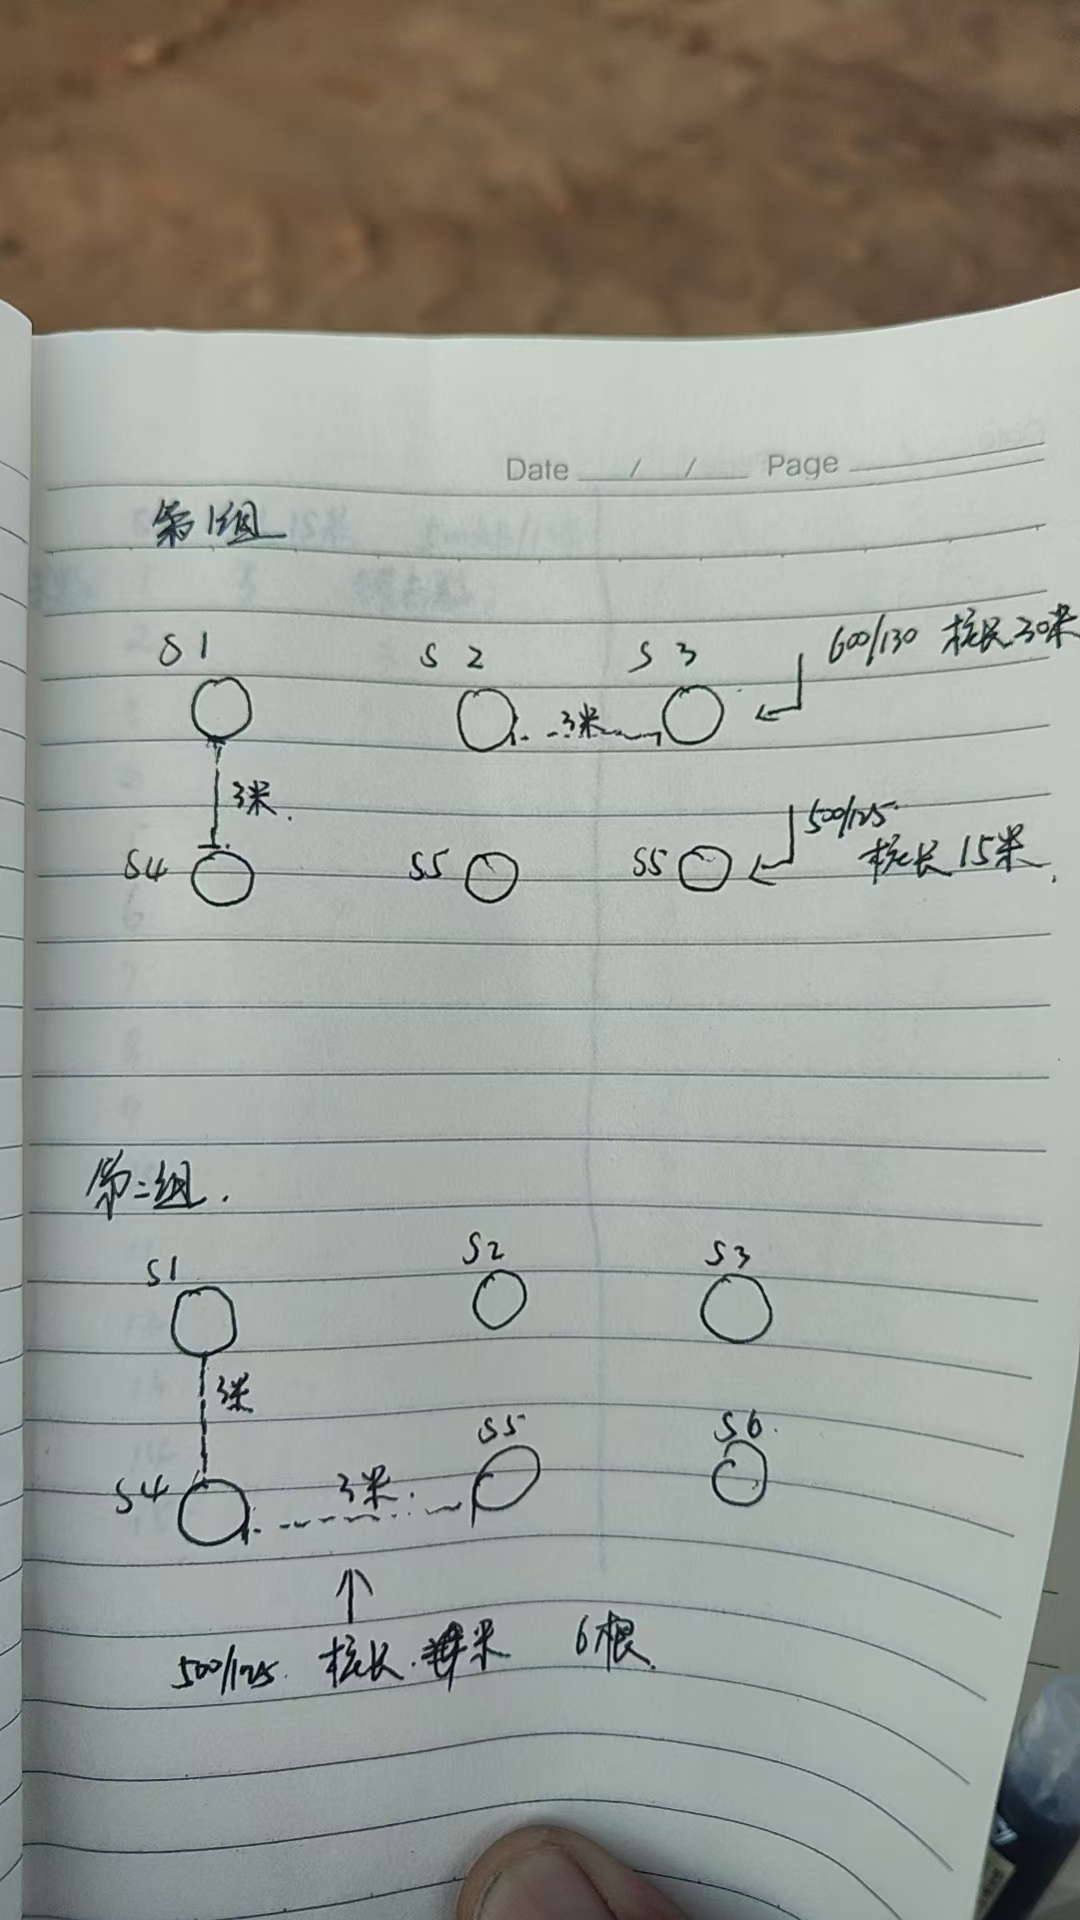 Date / / Page
第1组
S1 S2 S3
600/130 桩长30米
3米
3米.
500/125.
桩长15米
S4 S5 S5
第二组.
S1 S2 S3
3米
S4 S5 S6.
3米.
500/125. 桩长. 米 6根.